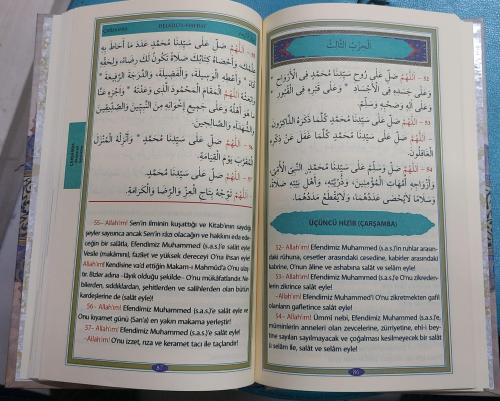 اَلْحِزْبُ الثَّالِثُ
52 – اَللّٰهُمَّ صَلِّ عَلٰى رُوحِ سَيِّدِنَا مُحَمَّدٍ فِى الْاَرْوَاحِ *
وَعَلٰى جَسَدِهِ فِى الْاَجْسَادِ * وَعَلٰى قَبْرِهِ فِى الْقُبُورِ *
وَعَلٰى اٰلِهِ وَصَحْبِهِ وَسَلِّمْ.
53 – اَللّٰهُمَّ صَلِّ عَلٰى سَيِّدِنَا مُحَمَّدٍ كُلَّمَا ذَكَرَهُ الذَّاكِرُونَ
اَللّٰهُمَّ صَلِّ عَلٰى سَيِّدِنَا مُحَمَّدٍ كُلَّمَا غَفَلَ عَنْ ذِكْرِهِ
الْغَافِلُونَ.
54 – اَللّٰهُمَّ صَلِّ وَسَلِّمْ عَلٰى سَيِّدِنَا مُحَمَّدٍ النَّبِىِّ الْاُمِّىِّ
وَاَزْوَاجِهِ اُمَّهَاتِ الْمُؤْمِنِينَ، وَذُرِّيَّتِهِ، وَاَهْلِ بَيْتِهِ صَلَاةً
وَسَلَامًا لَايُحْصٰى عَدَدُهُمَا، وَلَايُقْطَعُ مَدَدُهُمَا.
ÜÇÜNCÜ HİZİB (ÇARŞAMBA)
52– Allah'ım! Efendimiz Muhammed (s.a.s.)'in ruhlar arasın-
daki rûhuna, cesetler arasındaki cesedine, kabirler arasındaki
kabrine, O'nun âline ve ashabına salât ve selâm eyle!
53 – Allah'ım! Efendimiz Muhammed (s.a.s.)'e O'nu zikreden-
lerin zikrince salât eyle!
– Allah'ım! Efendimiz Muhammed'i O'nu zikretmekten gafil
olanların gafletince salât eyle!
54 – Allah'ım! Ümmî nebi, Efendimiz Muhammed (s.a.s.)'e,
müminlerin anneleri olan zevcelerine, zürriyetine, ehl-i bey-
tine sayıları sayılmayacak ve çoğalması kesilmeyecek bir salât
ü selâm ile, salât ve selâm eyle!
86
ÇARŞAMBA
DELÂİLÜ'L-HAYRÂT
55 – اَللّٰهُمَّ صَلِّ عَلٰى سَيِّدِنَا مُحَمَّدٍ عَدَدَ مَا اَحَاطَ بِهِ
عِلْمُكَ، وَاَحْصَاهُ كِتَابُكَ صَلَاةً تَكُونُ لَكَ رِضَاءً، وَلِحَقِّهِ
اَدَاءً * وَاَعْطِهِ الْوَسِيلَةَ، وَالْفَضِيلَةَ، وَالدَّرَجَةَ الرَّفِيعَةَ *
وَابْعَثْهُ اَللّٰهُمَّ الْمَقَامَ الْمَحْمُودَ الَّذِى وَعَدْتَهُ * وَاجْزِهِ عَنَّا
مَا هُوَ اَهْلُهُ وَعَلٰى جَمِيعِ اِخْوَانِهِ مِنَ النَّبِيِّينَ وَالصِّدِّيقِينَ
وَالشُّهَدَاءِ وَالصَّالِحِينَ.
56 – اَللّٰهُمَّ صَلِّ عَلٰى سَيِّدِنَا مُحَمَّدٍ * وَاَنْزِلْهُ الْمُنْزَلَ
الْمُقَرَّبَ يَوْمَ الْقِيَامَةِ.
57 – اَللّٰهُمَّ صَلِّ عَلٰى سَيِّدِنَا مُحَمَّدٍ.
– اَللّٰهُمَّ تَوِّجْهُ بِتَاجِ الْعِزِّ وَالرِّضَا وَالْكَرَامَةِ.
ÇARŞAMBA
55– Allah'ım! Sen'in ilminin kuşattığı ve Kitab'ının saydığı
şeyler sayısınca ancak Sen'in râzı olacağın ve hakkını eda ede-
ceğin bir salâtla, Efendimiz Muhammed (s.a.s.)'e salât eyle!
Vesîle (makâmını), fazîlet ve yüksek dereceyi O'na ihsan eyle!
Allah'ım! Kendisine va'd ettiğin Makam-ı Mahmûd'a O'nu ulaş-
tır. Bizler adına -lâyık olduğu şekilde- O'nu mükâfatlandır. Ne-
bîlerden, sıddıklardan, şehitlerden ve salihlerden olan bütün
kardeşlerine de (salât eyle)!
56 – Allah'ım! Efendimiz Muhammed (s.a.s.)'e salât eyle ve
O'nu kıyamet günü (Sana'a) en yakın makama yerleştir!
57– Allah'ım! Efendimiz Muhammed (s.a.s.)'e salât eyle!
– Allah'ım! O'nu izzet, rıza ve keramet tacı ile taçlandır!
87